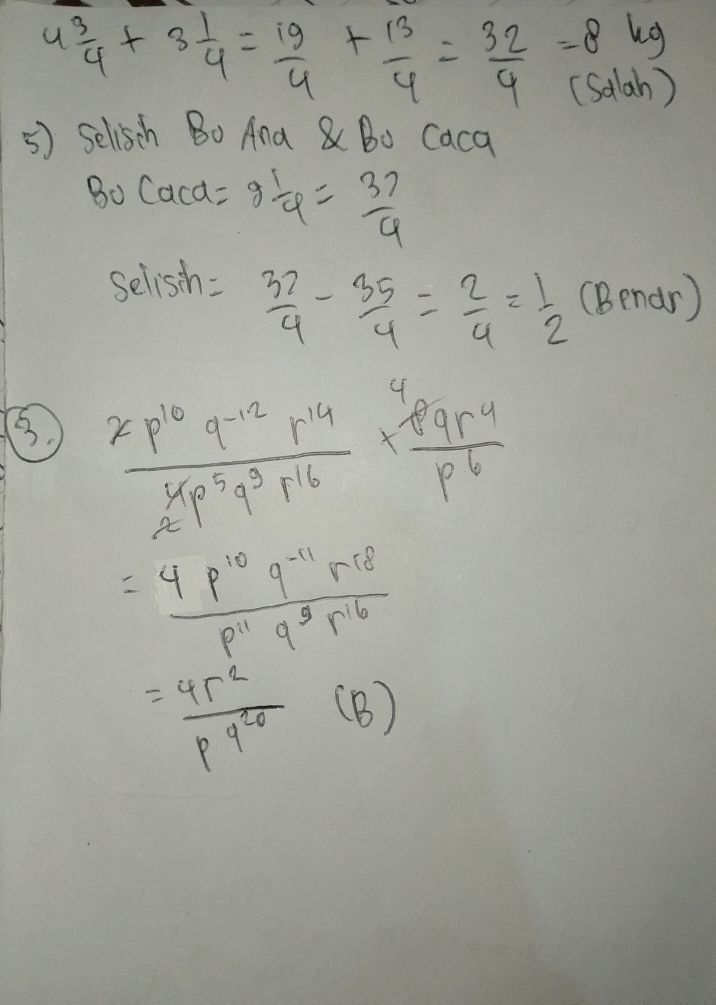 4 3/4 + 3 1/4 = 19/4 + 13/4 = 32/4 = 8 kg
(Salah)
5) Selisih Bu Ana & Bu Caca
Bu Caca = 9 1/4 = 37/4
Selisih = 37/4 - 35/4 = 2/4 = 1/2 (Benar)
3. 2 p^10 q^-12 r^14 / 4 p^5 q^9 r^16 × 8 q r^4 / p^6
4
2
= 4 p^10 q^-11 r^18 / p^11 q^9 r^16
= 4 r^2 / p q^20 (B)